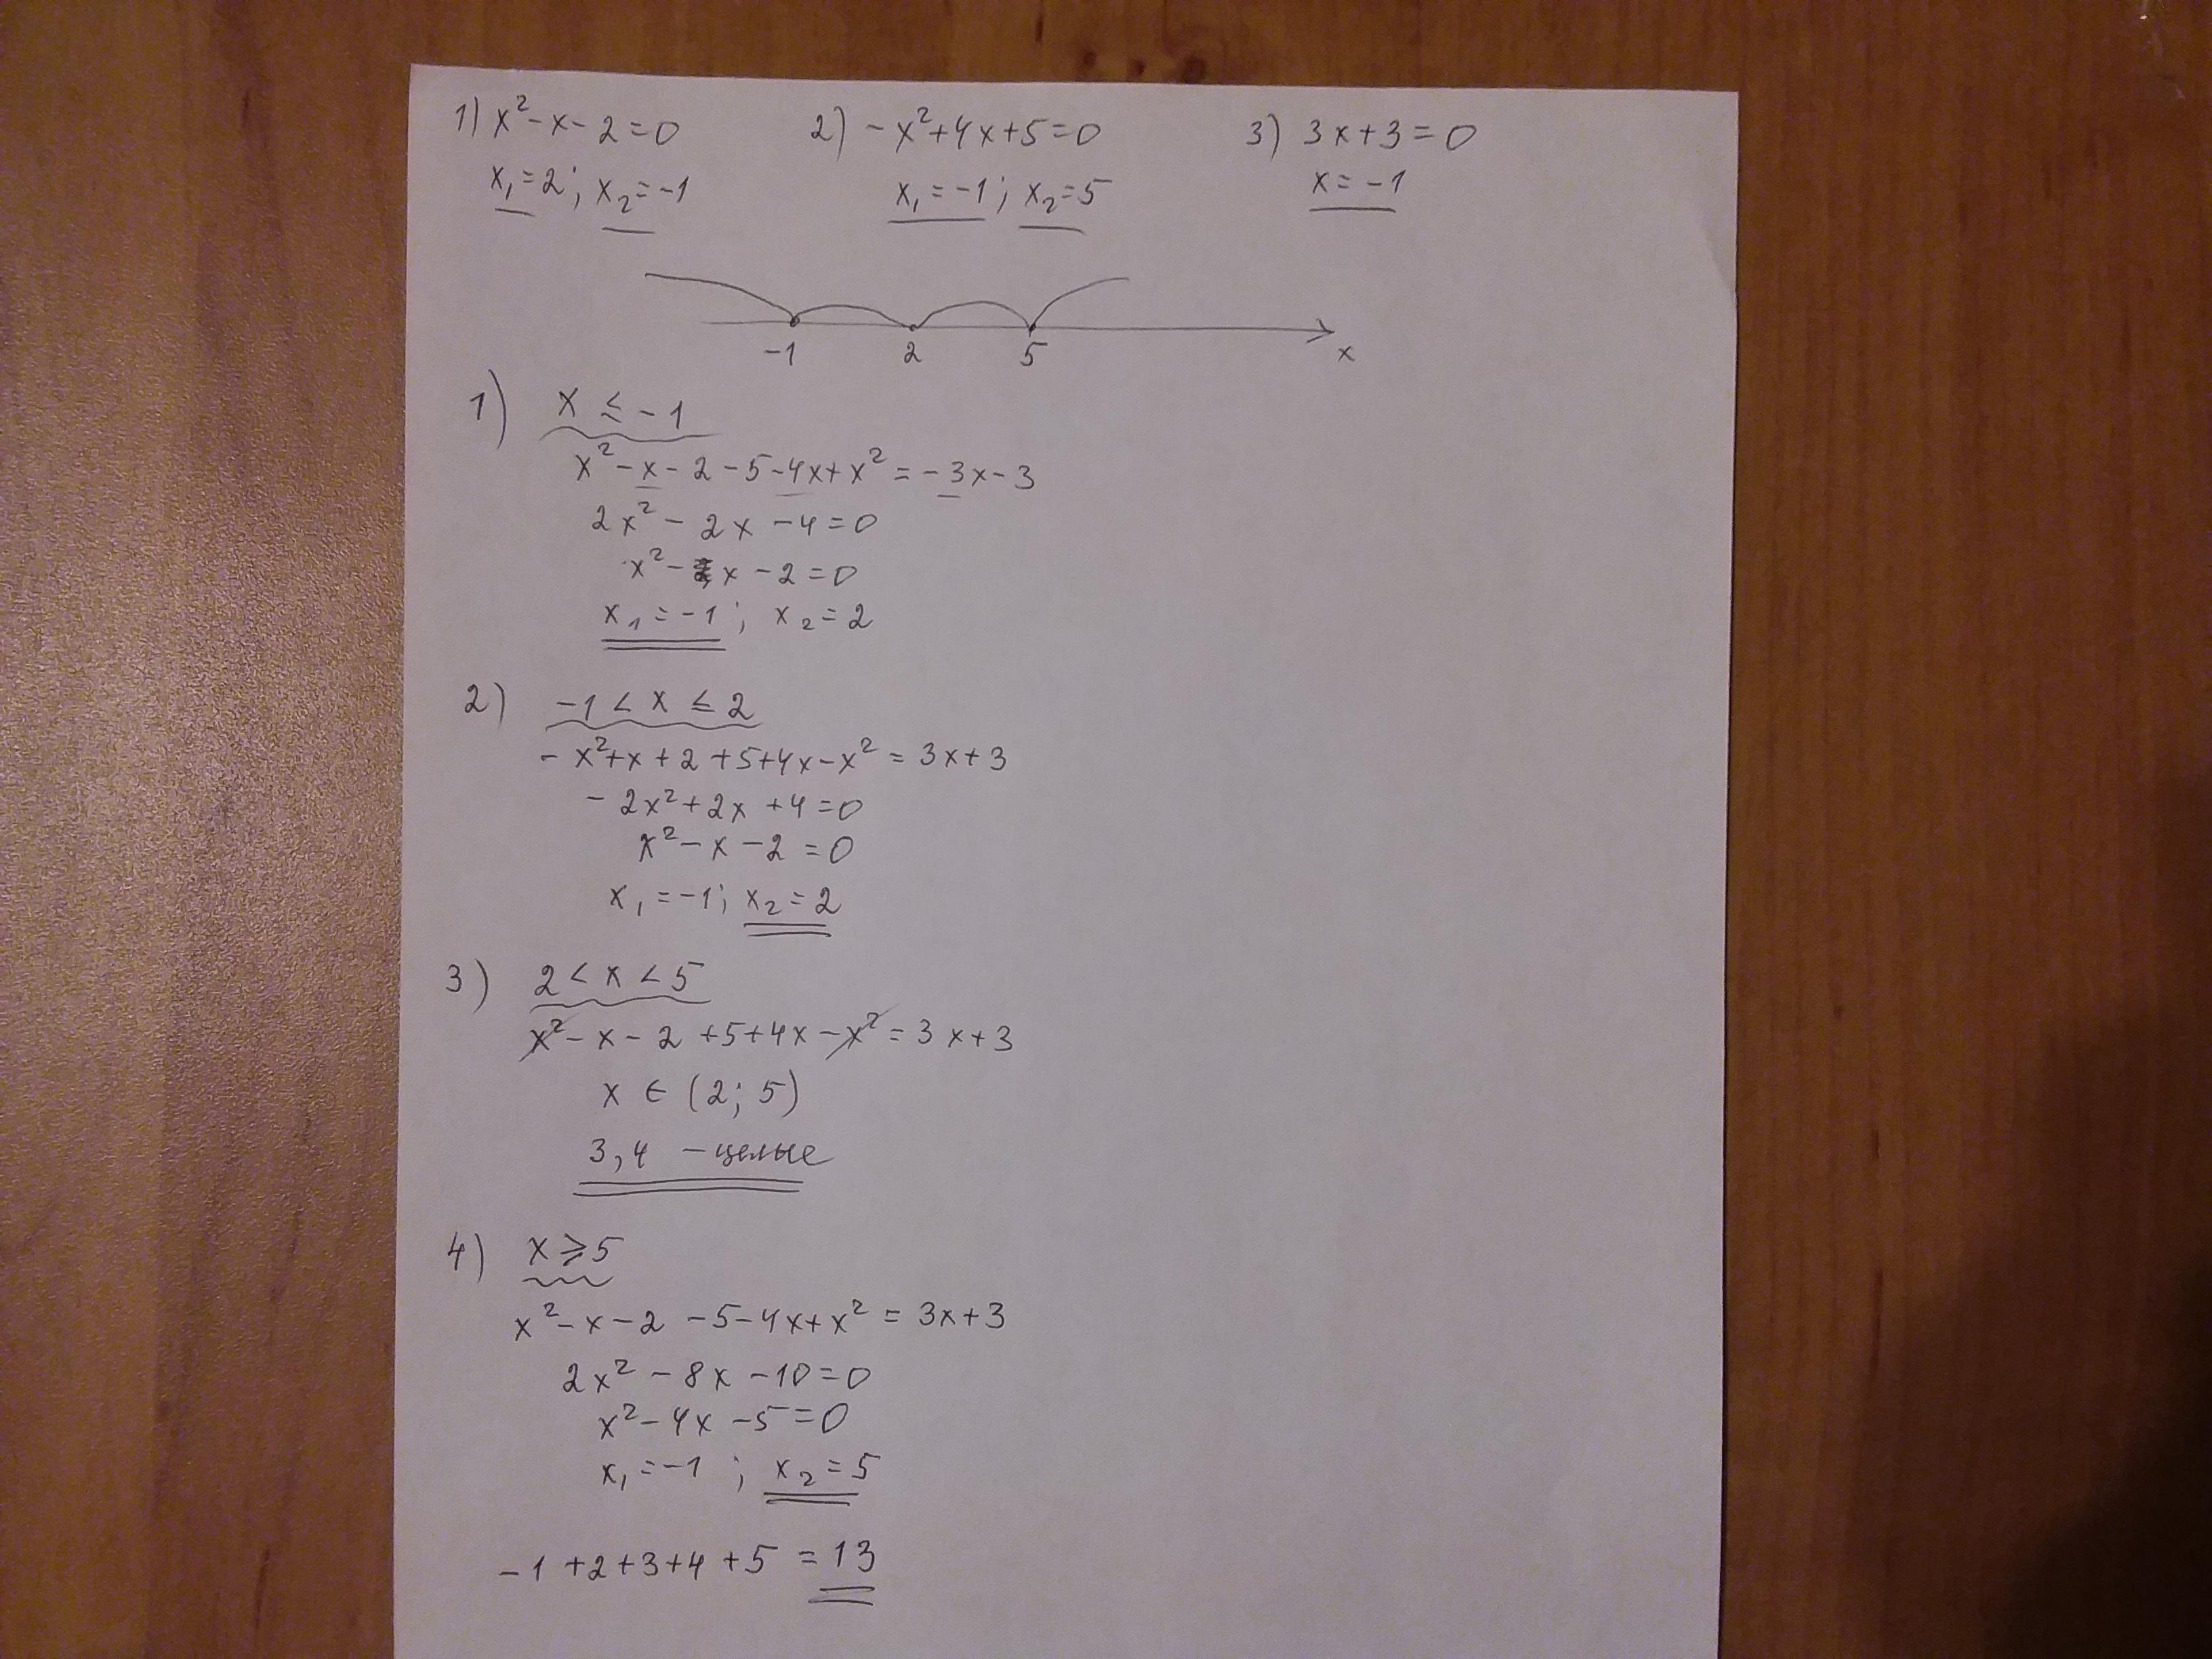 1) x² - x - 2 = 0 2) - x² + 4x + 5 = 0 3) 3x + 3 = 0
x₁ = 2; x₂ = -1 x₁ = -1; x₂ = 5 x = -1
-1 2 5 x
1) x ≤ -1
x² - x - 2 - 5 - 4x + x² = -3x - 3
2x² - 2x - 4 = 0
x² - x - 2 = 0
x₁ = -1; x₂ = 2
2) -1 < x ≤ 2
- x² + x + 2 + 5 + 4x - x² = 3x + 3
- 2x² + 2x + 4 = 0
x² - x - 2 = 0
x₁ = -1; x₂ = 2
3) 2 < x < 5
x² - x - 2 + 5 + 4x - x² = 3x + 3
x ∈ (2; 5)
3, 4 - целые
4) x ⩾ 5
x² - x - 2 - 5 - 4x + x² = 3x + 3
2x² - 8x - 10 = 0
x² - 4x - 5 = 0
x₁ = -1; x₂ = 5
-1 + 2 + 3 + 4 + 5 = 13